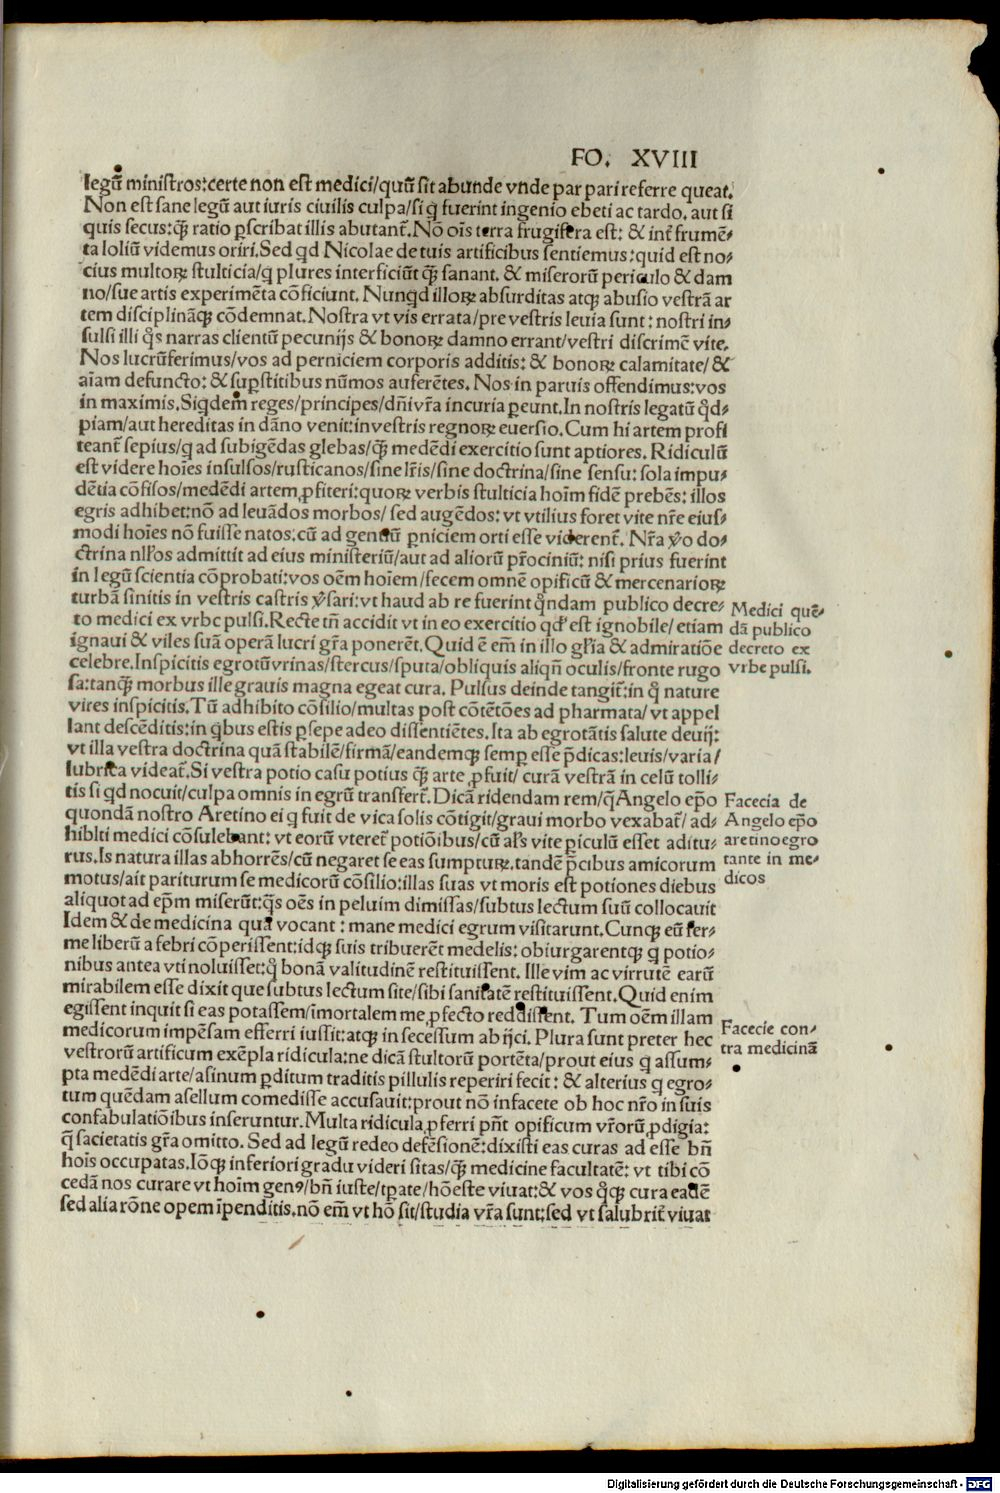 FO. XVIII
legū ministros:certe non est medici/quū sit abunde vnde par pari referre queat.
Non est sane legū aut iuris ciuilis culpa/si q̄ fuerint ingenio ebeti ac tardo. aut si
quis secus:q̄ꝫ ratio ꝑscribat illis abutant̄. Nō oīs terra frugifera est: & int̄ frumē-
ta loliū videmus oriri. Sed qd Nicolae de tuis artificibus sentiemus:quid est no-
cius multoꝝ stulticia/q plures interficiūt q̄ꝫ sanant. & miserorū periculo & dam
no/sue artis experimēta cōficiunt. Nunqd illoꝝ absurditas atqꝫ abusio vestrā ar
tem disciplināqꝫ cōdemnat. Nostra vt vis errata/pre vestris leuia sunt: nostri in-
sulsi illi q̊s narras clientū pecunijs & bonoꝝ damno errant/vestri discrimē vite.
Nos lucrūferimus/vos ad perniciem corporis additis: & bonoꝝ calamitate/ &
aīam defuncto: & suꝑstitibus nūmos auferētes. Nos in paruis offendimus:vos
in maximis. Siqdem reges/principes/dn̄i vr̄a incuria ꝑeunt. In nostris legatū q̊d-
piam/aut hereditas in dāno venit:in vestris regnoꝝ euersio. Cum hi artem profi
teant̄ sepius/q ad subigēdas glebas/q̄ꝫ medēdi exercitio sunt aptiores. Ridiculū
est videre hoīes insulsos/rusticanos/sine lr̄is/sine doctrina/sine sensu: sola impu-
dētia cōfisos/medēdi artem ꝓfiteri:quoꝝ verbis stulticia hoīm fidē prebēs: illos
egris adhibet:nō ad leuādos morbos/ sed augēdos: vt vtilius foret vite nr̄e eius-
modi hoīes nō fuisse natos:cū ad gentiū ꝑniciem orti esse viderent̄. Nr̄a ꝟo do-
ctrina nll'os admittit ad eius ministeriū/aut ad aliorū pr̄ociniū: nisi prius fuerint
in legū scientia cōprobati:vos oēm hoīem/fecem omnē opificū & mercenarioꝝ
turbā sinitis in vestris castris ꝟsari:vt haud ab re fuerint q̊ndam publico decre-
to medici ex vrbe pulsi. Recte tn̄ accidit vt in eo exercitio qd' est ignobile/ etiam
ignaui & viles suā operā lucri gr̄a ponerēt. Quid ē em̄ in illo gl'ia & admiratiōe
celebre. Inspicitis egrotū vrinas/stercus/sputa/obliquis aliqn̄ oculis/fronte rugo
sa:tanq̄ꝫ morbus ille grauis magna egeat cura. Pulsus deinde tangit̄:in q̊ nature
vires inspicitis. Tū adhibito cōsilio/multas post cōtētōes ad pharmata/ vt appel
lant descēditis:in qbus estis ꝑsepe adeo dissentiētes. Ita ab egrotātis salute deuij:
vt illa vestra doctrina quā stabilē/firmā/eandemqꝫ semꝑ esse p̄dicas:leuis/varia/
lubrica videat̄. Si vestra potio casu potius q̄ꝫ arte ꝓfuit/ curā vestrā in celū tolli-
tis si qd nocuit/culpa omnis in egrū transfert̄. Dicā ridendam rem/q̄ Angelo ep̄o
quondā nostro Aretino ei q fuit de vica solis cōtigit/graui morbo vexabat̄/ ad-
hibiti medici cōsulebant: vt eorū vteret̄ potiōibus/cū al's vite ꝑiculū esset aditu-
rus. Is natura illas abhorrēs/cū negaret se eas sumptuꝝ.tandē p̄cibus amicorum
motus/ait pariturum se medicorū cōsilio:illas suas vt moris est potiones diebus
aliquot ad ep̄m miserūt:q̊s oēs in peluim dimissas/subtus lectum suū collocauit
Idem & de medicina quā vocant : mane medici egrum visitarunt. Cunqꝫ eū fer-
me liberū a febri cōperissent:idqꝫ suis tribuerēt medelis: obiurgarentqꝫ q potio-
nibus antea vti noluisset:q̊ bonā valitudinē restituissent. Ille vim ac virtutē earū
mirabilem esse dixit que subtus lectum site/sibi sanitatē restituissent. Quid enim
egissent inquit si eas potassem/immortalem me ꝓfecto reddissent. Tum oēm illam
medicorum impēsam efferri iussit:atqꝫ in secessum abijci. Plura sunt preter hec
vestrorū artificum exēpla ridicula:ne dicā stultorū portēta/prout eius q assum-
pta medēdi arte/asinum ꝑditum traditis pillulis reperiri fecit: & alterius q egro-
tum quēdam asellum comedisse accusauit:prout nō infacete ob hoc nr̄o in suis
confabulatiōibus inseruntur. Multa ridicula ꝓferri pn̄t opificum vr̄orū ꝓdigia:
q̄ sacietatis gr̄a omitto. Sed ad legū redeo defēsionē:dixisti eas curas ad esse bn̄
hois occupatas. Iōqꝫ inferiori gradu videri sitas/q̄ꝫ medicine facultatē: vt tibi cō
cedā nos curare vt hoīm genꝰ/bn̄ iuste/tꝑate/hōeste viuat:& vos q̊qꝫ cura eadē
sed alia rōne opem īpenditis.nō em̄ vt hō sit/studia vr̄a sunt:sed vt salubrit̄ viuat
Medici quē-
dā publico
decreto ex
vrbe pulsi.
Facecia de
Angelo ep̄o
aretino egro
tante in me-
dicos
Facecie con-
tra medicinā
Digitalisierung gefördert durch die Deutsche Forschungsgemeinschaft - DFG